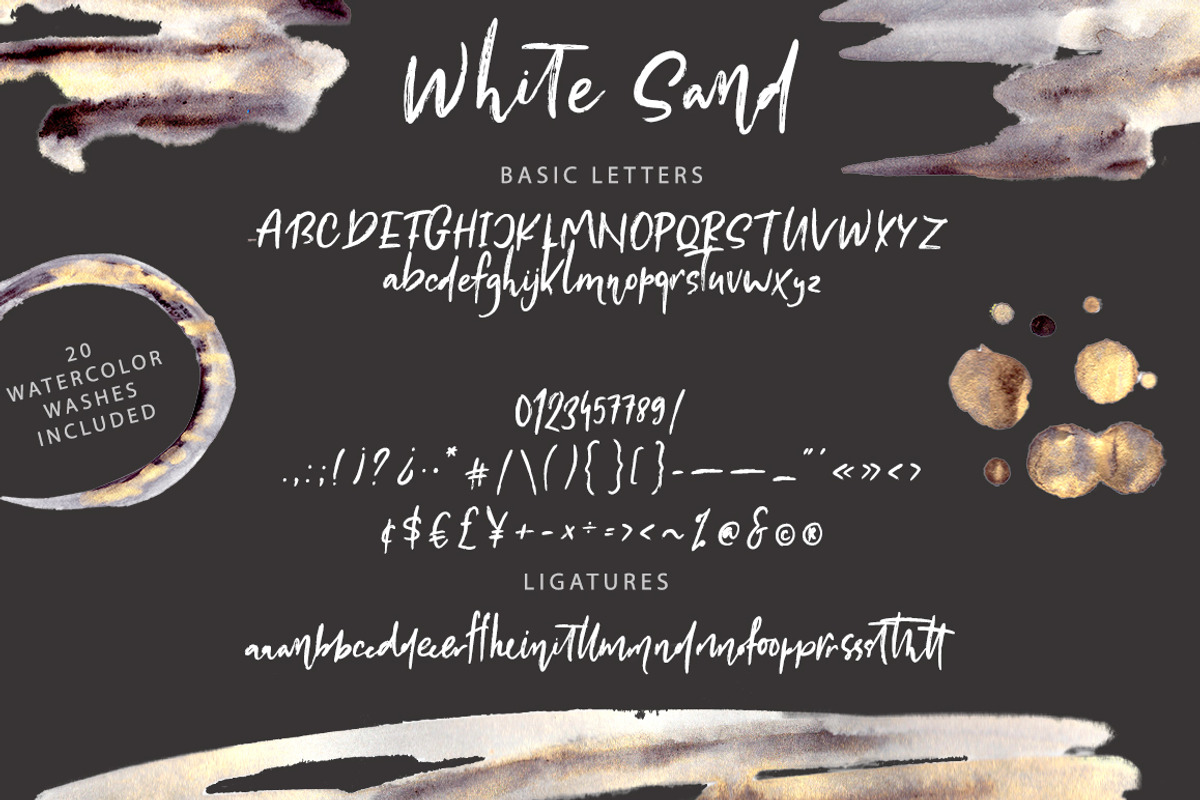 White Sand
BASIC LETTERS
ABCDEFGHIJKLMNOPQRSTUVWXYZ
abcdefghijklmnopqrstuvwxyz
20
WATERCOLOR
WASHES
INCLUDED
0123457789/
.,:;!¡?¿··*#/\(){}[]-——_"'«»<>
¢$€£¥+-×÷=><~%@&©®
LIGATURES